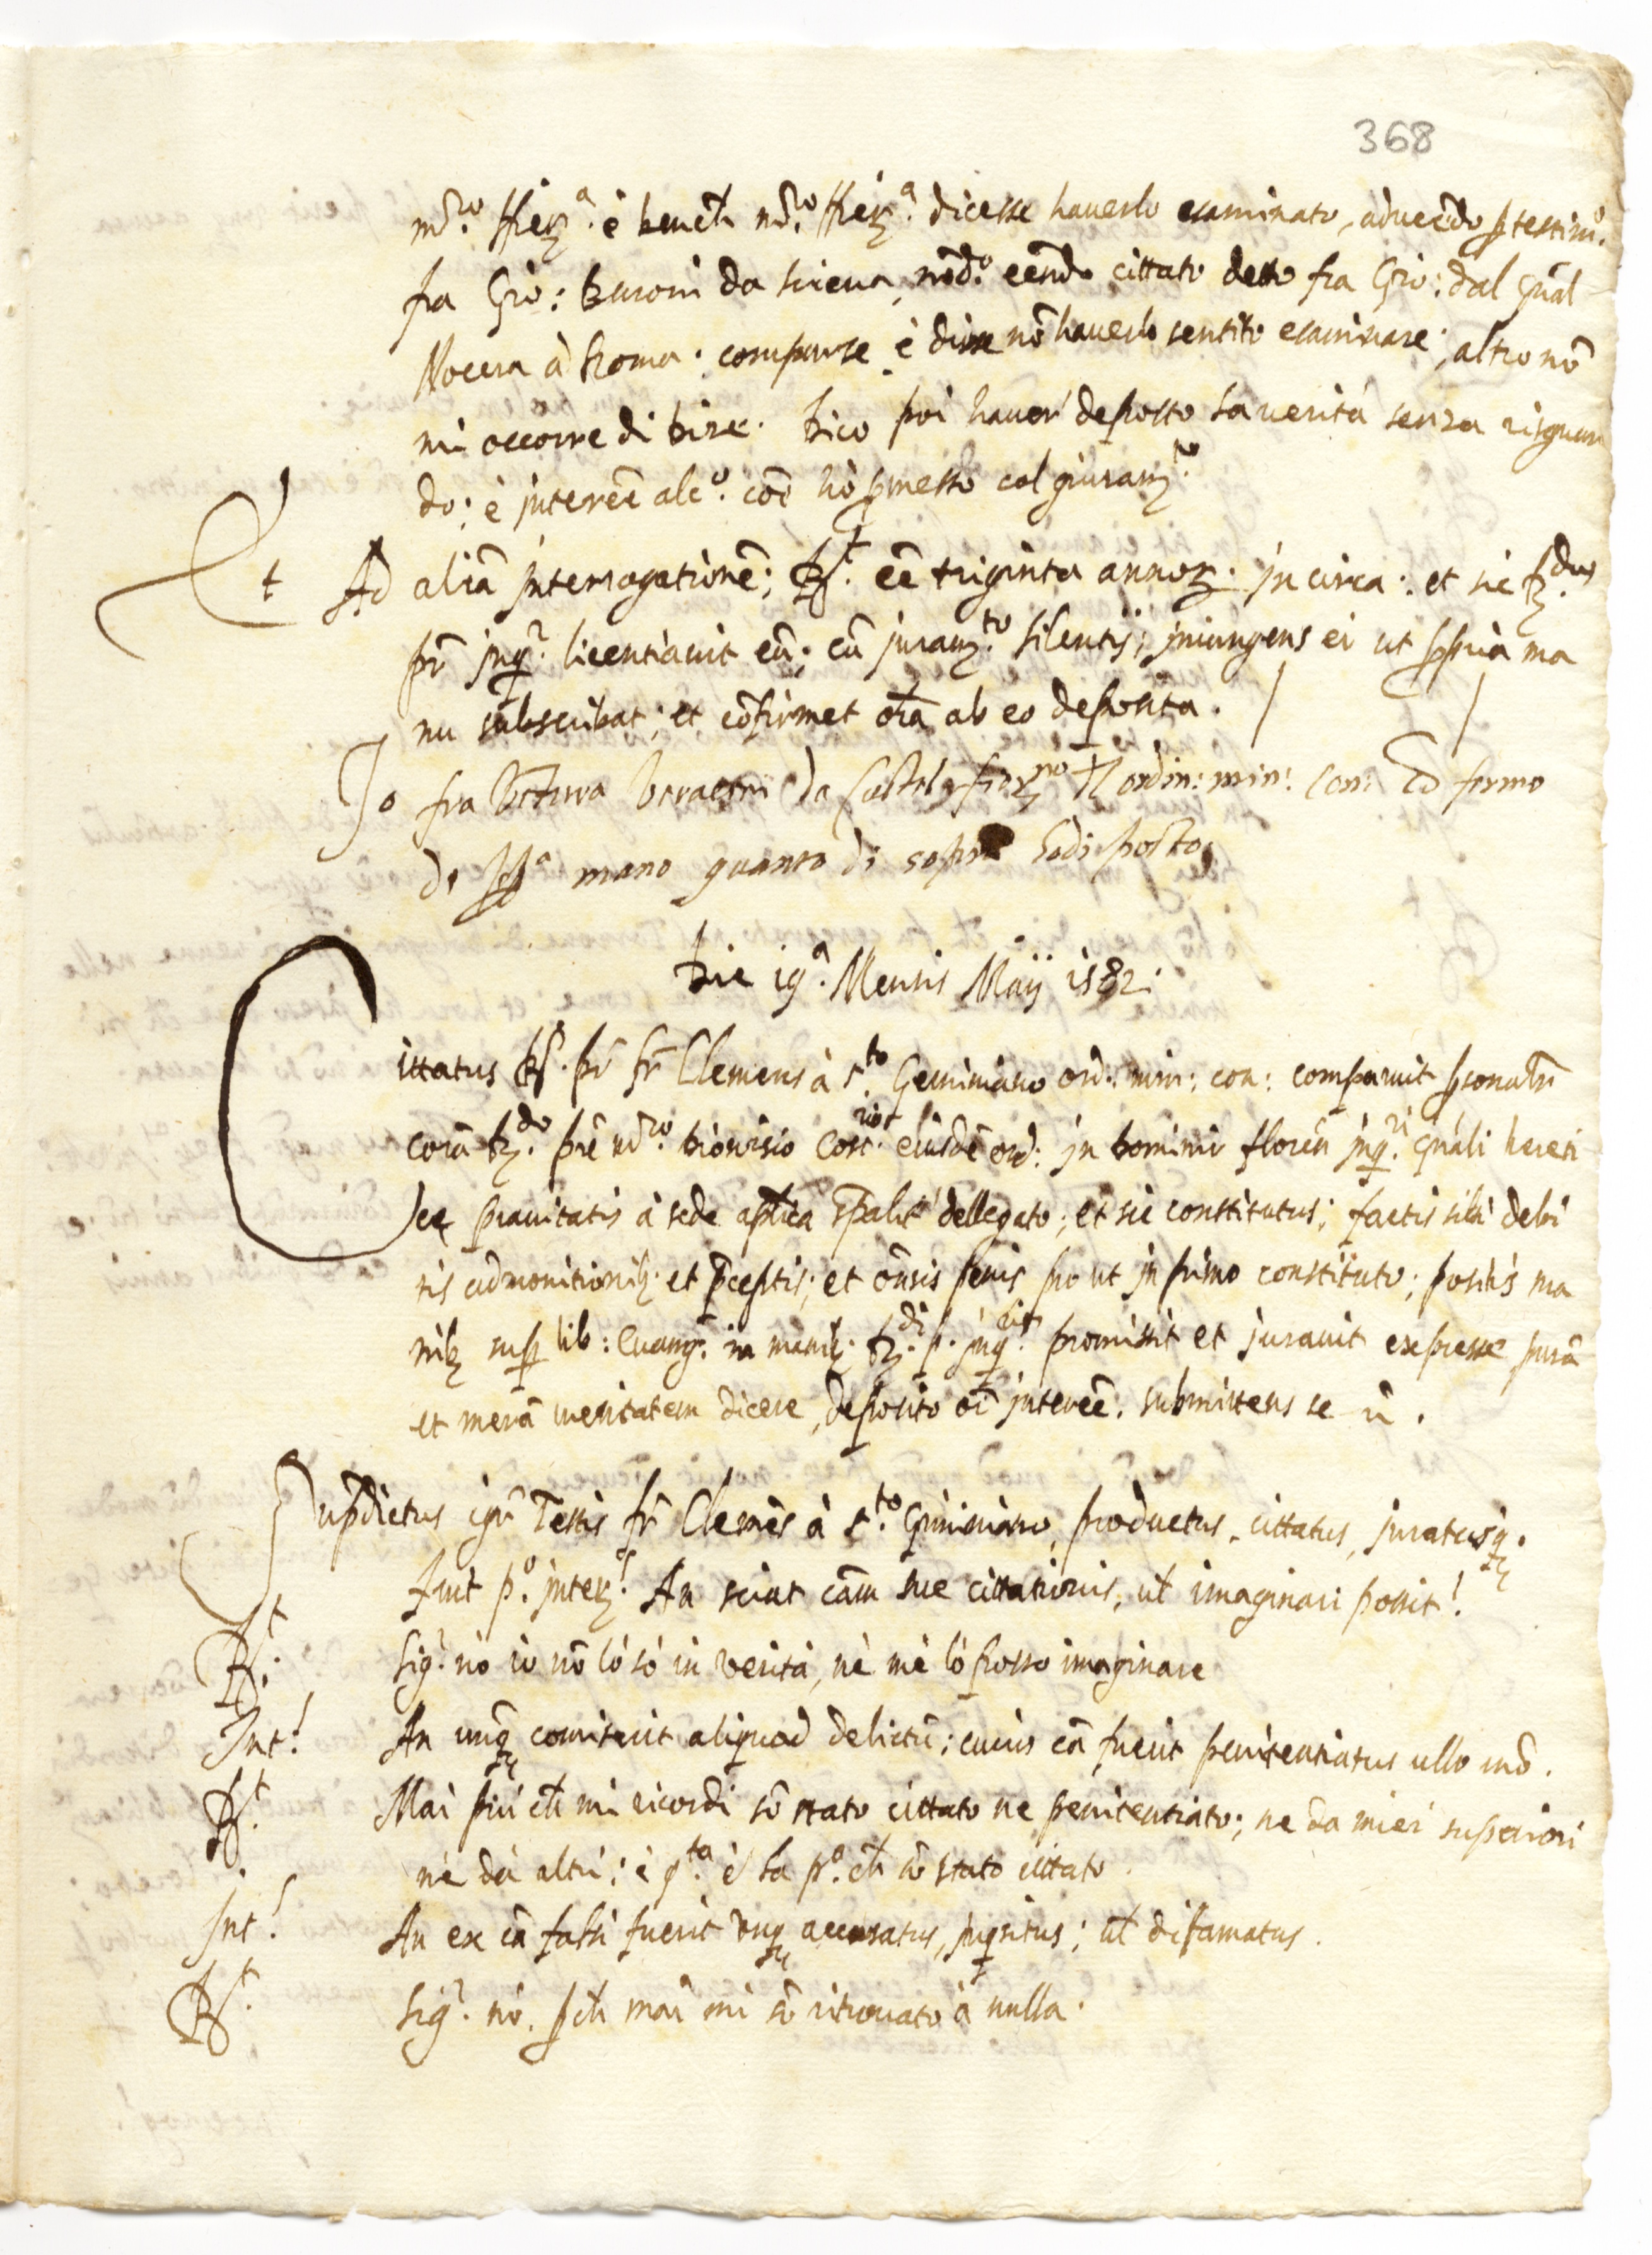 368
m͂ro. Hierª. è bench̃ m͂ro. Hierª. dicesse hauerlo esaminato, aduced͂o p testimº.
fra Gio: Buroni da Siena, nõd.º eend͂o cittato detto fra Gio: dal Quãl
Nocera à Roma. comparse è disse nõ hauerlo sentito esaminare; altro nõ
mi occorre di dire. Dico poi hauer deposto la uerità senza risguar
do; è intereẽ alcº. coẽ hò pmesso col giuramto.
Et Ad aliã interrogationẽ; Rt. eẽ triginta annoꝝ. in circa: et sic R.dus
pr̃ inqr. licentiauit eũ; cũ juramto. silentij; iniungens ei ut ppria ma
nu subscribat; et cõfirmet oĩa ab eo deposita.
Io fra da Castel fior.no ordin: min: con: Co fermo
di ppª mano quanto di sopra ho diposto
Die 19ª. Mensis Maij 1582.
Cittatus Rs. pr̃ fr̃ Clemens à sto. Geminiano ord: min: con: comparuit psonalr̃
corã R.do pr̃e m͂ro. Dionisio Cost.rio eiusdẽ ord: in dominio florẽn inq.ri quali hereti
ce prauitatis à sede aplica spalit̃ dellegato; et sic constitutus; factis sibi debi
tis admonitionibꝫ. et p̃ceptis; et oñsis penis pro ut in primo constituto; positis ma
nibꝫ sup lib: Euang. in manibꝫ. R.di p. inq.ris promissit et jurauit expresse purã
et merã ueritatem dicere, deposito oĩ intereẽ. submittens se r̃.
Supd̃ictus igr̃ Testis fr̃ Clemẽs à sto. Giminiano, productus, cittatus, juratusq.
Fuit pº. inter. An sciat cãm sue cittationis, ul̃ imaginari possit!
Rt. Sigr. nò io nõ lò sò in verità, nè mè lò posso imaginare
Int! An unq̃ comiterit aliquod delictũ; cuius cã fuerit penitentiatus ullo mõ.
Rt. Mai più ch̃ mi ricordi sõ stato cittato ne penitentiato; ne da miei superiori
nè dà altri; è q.ta è la pª. ch̃ sõ stato cittato.
Int! An ex cã falsi fuerit unq̃ accusatus, inqsitus; ul̃ difamatus.
Rt. Sigr. nò. pch̃ mai mi sõ ritrouato à nulla.